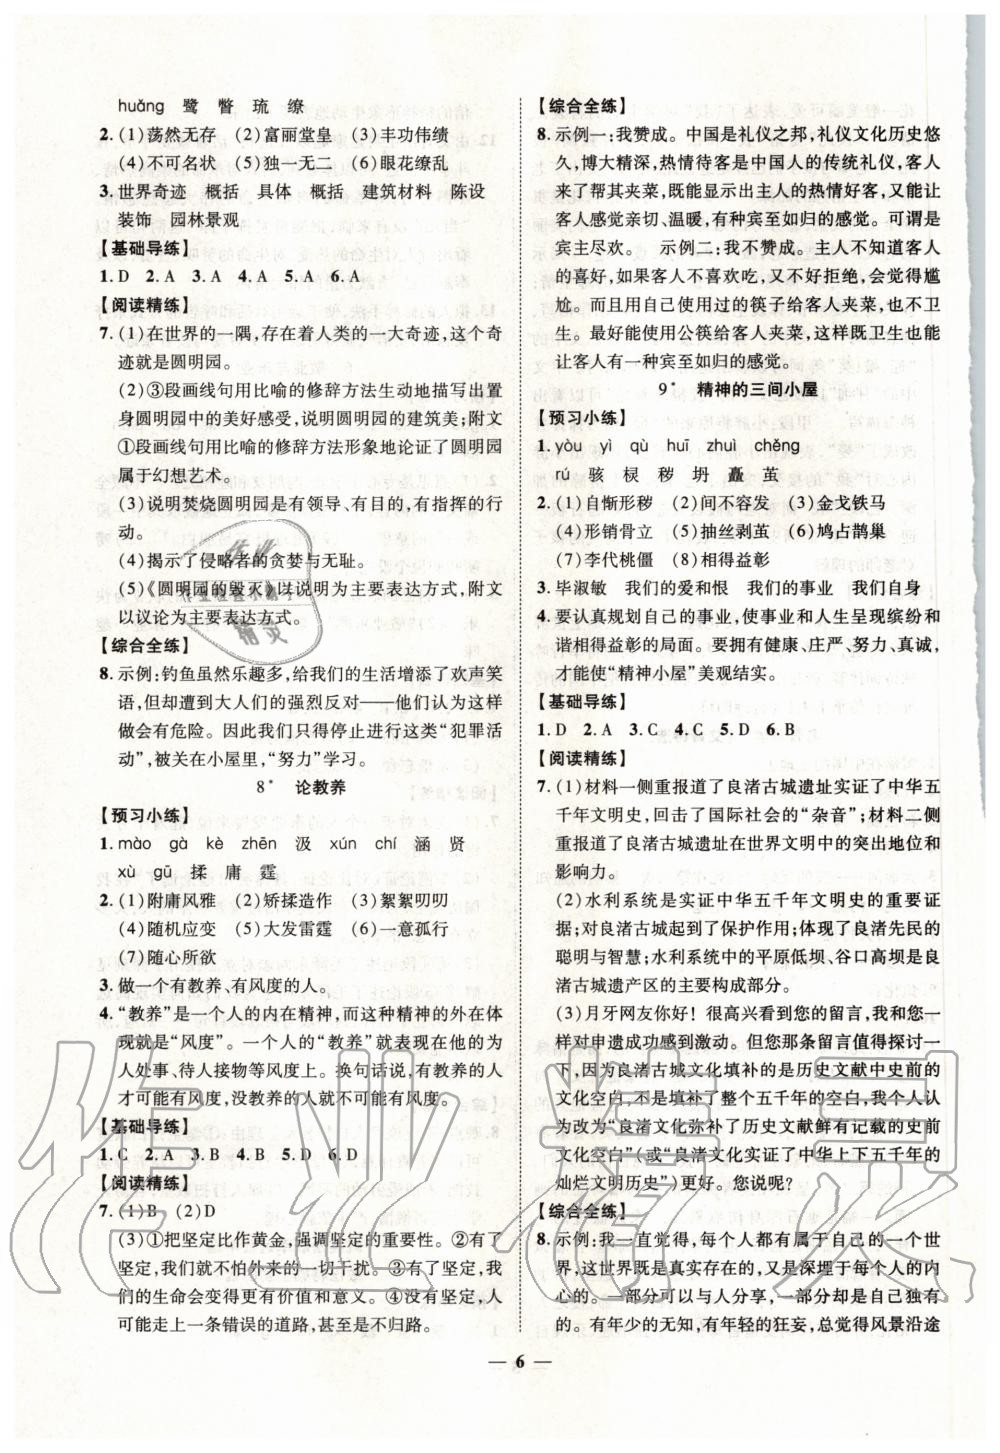 huǎng　鹭　瞥　琉　缭
2. (1)荡然无存　(2)富丽堂皇　(3)丰功伟绩
(4)不可名状　(5)独一无二　(6)眼花缭乱
3. 世界奇迹　概括　具体　概括　建筑材料　陈设
装饰　园林景观
【基础导练】
1. D　2. A　3. A　4. A　5. A　6. A
【阅读精练】
7. (1)在世界的一隅,存在着人类的一大奇迹,这个奇
迹就是圆明园。
(2)③段画线句用比喻的修辞方法生动地描写出置
身圆明园中的美好感受,说明圆明园的建筑美;附文
①段画线句用比喻的修辞方法形象地论证了圆明园
属于幻想艺术。
(3)说明焚烧圆明园是有领导、有目的,有指挥的行
动。
(4)揭示了侵略者的贪婪与无耻。
(5)《圆明园的毁灭》以说明为主要表达方式,附文
以议论为主要表达方式。
【综合全练】
8. 示例:钓鱼虽然乐趣多,给我们的生活增添了欢声笑
语,但却遭到大人们的强烈反对——他们认为这样
做会有危险。因此我们只得停止进行这类“犯罪活
动”,被关在小屋里,“努力”学习。
8*　论教养
【预习小练】
1. mào　gà　kè　zhēn　汲　xún　chí　涵　贤
xù　gū　揉　庸　霆
2. (1)附庸风雅　(2)矫揉造作　(3)絮絮叨叨
(4)随机应变　(5)大发雷霆　(6)一意孤行
(7)随心所欲
3. 做一个有教养、有风度的人。
4. “教养”是一个人的内在精神,而这种精神的外在体
现就是“风度”。一个人的“教养”就表现在他的为
人处事、待人接物等风度上。换句话说,有教养的人
才可能有风度,没教养的人就不可能有风度。
【基础导练】
1. C　2. A　3. B　4. B　5. D　6. D
【阅读精练】
7. (1)B　(2)D
(3)①把坚定比作黄金,强调坚定的重要性。②有了
坚定,我们就不怕外来的一切干扰。③有了坚定,我
们的生命会变得更有价值和意义。④没有坚定,人
可能走上一条错误的道路,甚至是不归路。
【综合全练】
8. 示例一:我赞成。中国是礼仪之邦,礼仪文化历史悠
久,博大精深,热情待客是中国人的传统礼仪,客人
来了帮其夹菜,既能显示出主人的热情好客,又能让
客人感觉亲切、温暖,有种宾至如归的感觉。可谓是
宾主尽欢。　示例二:我不赞成。主人不知道客人
的喜好,如果客人不喜欢吃,又不好拒绝,会觉得尴
尬。而且用自己使用过的筷子给客人夹菜,也不卫
生。最好能使用公筷给客人夹菜,这样既卫生也能
让客人有一种宾至如归的感觉。
9*　精神的三间小屋
【预习小练】
1. yòu　yì　qù　huī　zhuì　chěng
rú　骇　棂　秽　坍　矗　茧
2. (1)自惭形秽　(2)间不容发　(3)金戈铁马
(4)形销骨立　(5)抽丝剥茧　(6)鸠占鹊巢
(7)李代桃僵　(8)相得益彰
3. 毕淑敏　我们的爱和恨　我们的事业　我们自身
4. 要认真规划自己的事业,使事业和人生呈现缤纷和
谐相得益彰的局面。要拥有健康、庄严、努力、真诚,
才能使“精神小屋”美观结实。
【基础导练】
1. D　2. A　3. C　4. C　5. D　6. B
【阅读精练】
7. (1)材料一侧重报道了良渚古城遗址实证了中华五
千年文明史,回击了国际社会的“杂音”;材料二侧
重报道了良渚古城遗址在世界文明中的突出地位和
影响力。
(2)水利系统是实证中华五千年文明史的重要证
据;对良渚古城起到了保护作用;体现了良渚先民的
聪明与智慧;水利系统中的平原低坝、谷口高坝是良
渚古城遗产区的主要构成部分。
(3)月牙网友你好!　很高兴看到您的留言,我和您一
样对申遗成功感到激动。但您那条留言值得探讨一
下,因为良渚古城文化填补的是历史文献中史前的
文化空白,不是填补了整个五千年的空白,我个人认
为改为“良渚文化弥补了历史文献鲜有记载的史前
文化空白”(或“良渚文化实证了中华上下五千年的
灿烂文明历史”)更好。您说呢?
【综合全练】
8. 示例:我一直觉得,每个人都有属于自己的一个世
界,这世界既是真实存在的,又是深埋于每个人的内
心的。一部分可以与人分享,一部分却是自己独有
的。有年少的无知,有年轻的狂妄,总觉得风景沿途
— 6 —
作业精灵